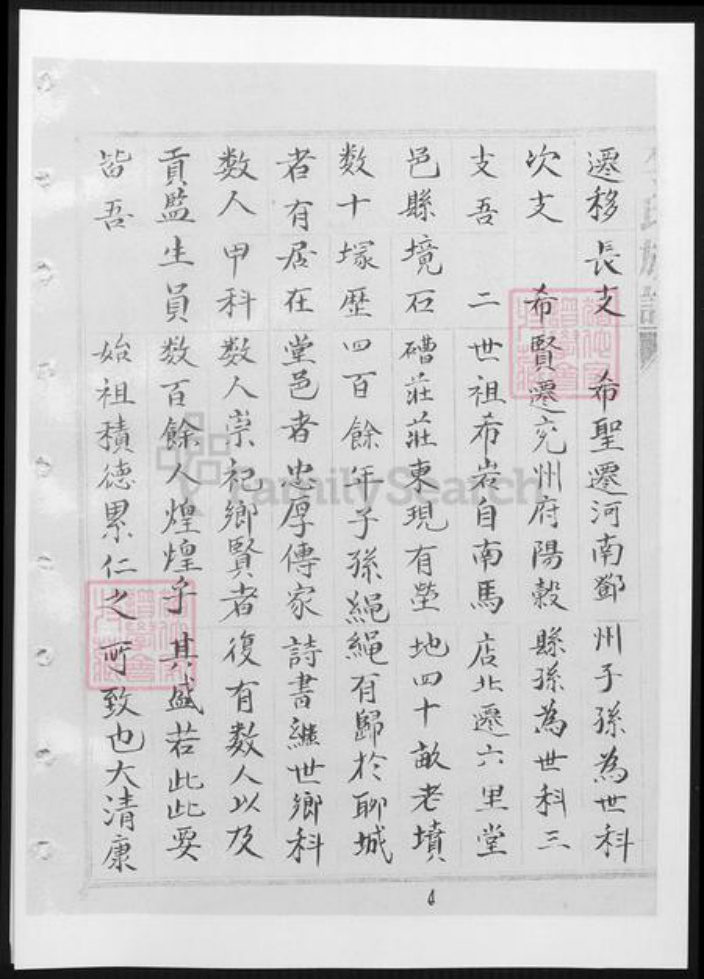 遷移長支 希聖遷河南鄧州子孫為世科
次支 希賢遷兖州府陽穀縣孫為世科三
支吾 二世祖希岩自南馬店北遷六里堂
邑縣境石磄莊莊東現有塋地四十畝老墳
数十塚歷四百餘年子孫繩繩有歸於聊城
者有居在堂邑者忠厚傳家詩書繼世鄉科
数人甲科数人崇祀鄉賢者復有数人以及
貢監生員数百餘人煌煌乎其盛若此此要
皆吾 始祖積德累仁之所致也大清康
FamilySearch